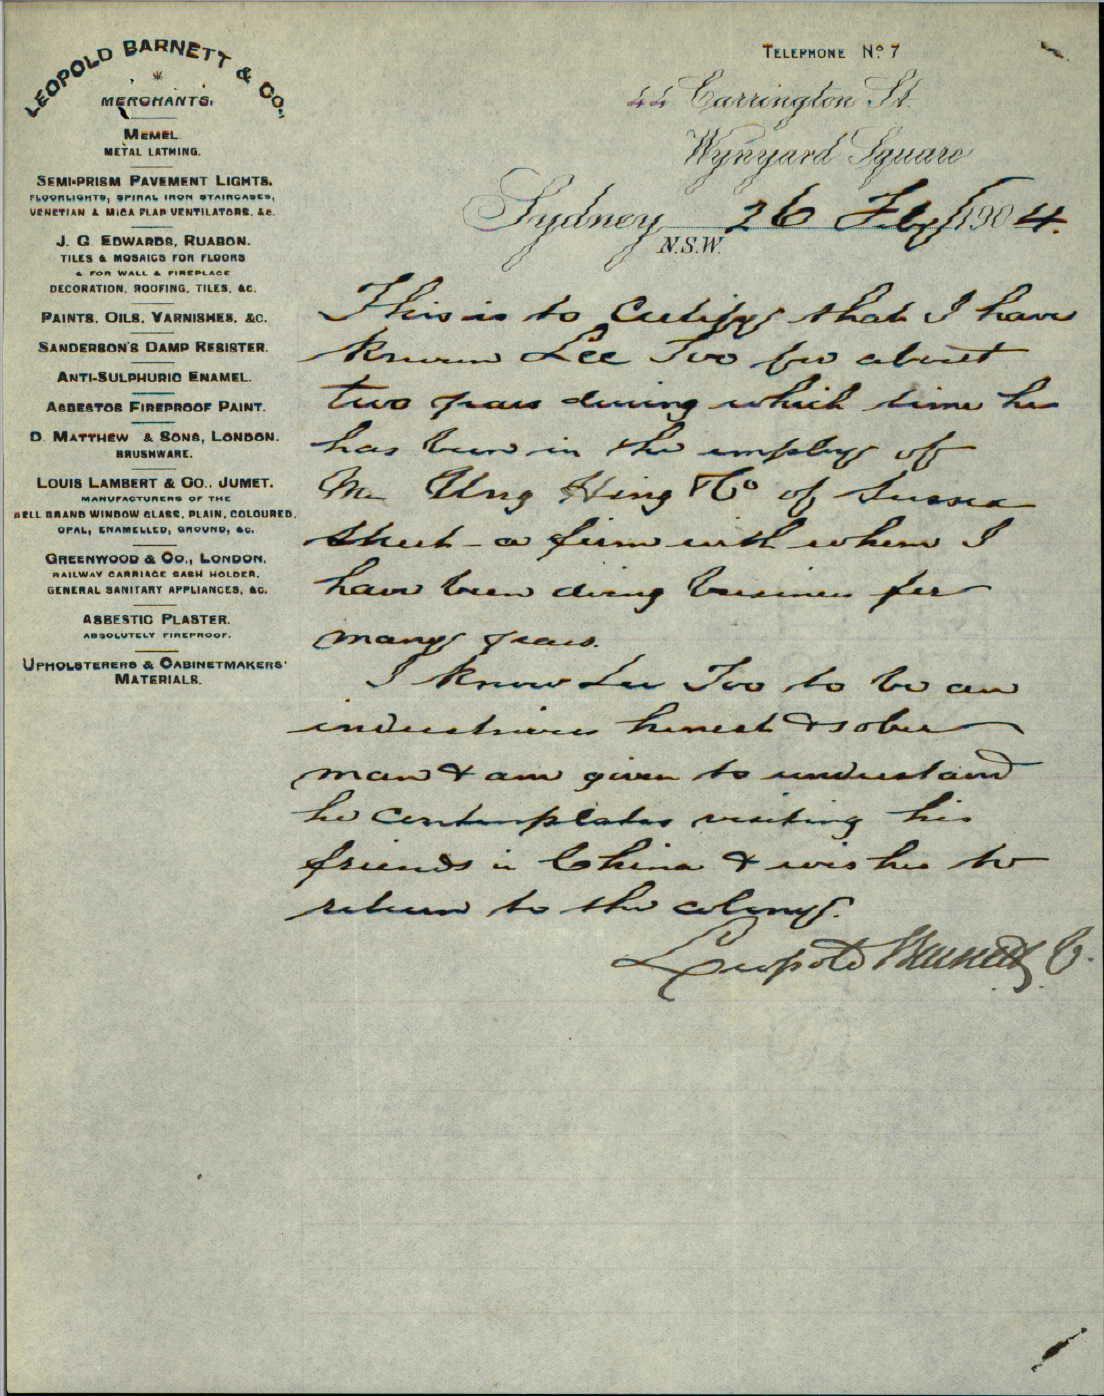 LEOPOLD BARNETT & CO.,
MERCHANTS.
MEMEL
METAL LATHING.
SEMI-PRISM PAVEMENT LIGHTS.
FLOORLIGHTS, SPIRAL IRON STAIRCASES,
VENETIAN & MICA FLAP VENTILATORS, &c.
J. C. EDWARDS, RUABON.
TILES & MOSAICS FOR FLOORS
& FOR WALL & FIREPLACE
DECORATION, ROOFING, TILES, &c.
PAINTS, OILS, VARNISHES, &c.
SANDERSON'S DAMP RESISTER.
ANTI-SULPHURIC ENAMEL.
ASBESTOS FIREPROOF PAINT.
D. MATTHEW & SONS, LONDON.
BRUSHWARE.
LOUIS LAMBERT & CO., JUMET.
MANUFACTURERS OF THE
BELL BRAND WINDOW GLASS, PLAIN, COLOURED,
OPAL, ENAMELLED, GROUND, &c.
GREENWOOD & CO., LONDON.
RAILWAY CARRIAGE SASH HOLDER,
GENERAL SANITARY APPLIANCES, &c.
ASBESTIC PLASTER.
ABSOLUTELY FIREPROOF.
UPHOLSTERERS & CABINETMAKERS'
MATERIALS.
TELEPHONE No. 7
44 Carrington St.
Wynyard Square
Sydney 26 Feby 1904.
N.S.W.
This is to Certify that I have
known Lee Too for about
two years during which time he
has been in the employ of
Mr Ung Hing & Co of Sussex
Street - a firm with whom I
have been doing business for
many years.
I know Lee Too to be an
industrious honest & sober
man & am given to understand
he contemplates visiting his
friends in China & wishes to
return to the colony.
Leopold Barnett & Co.